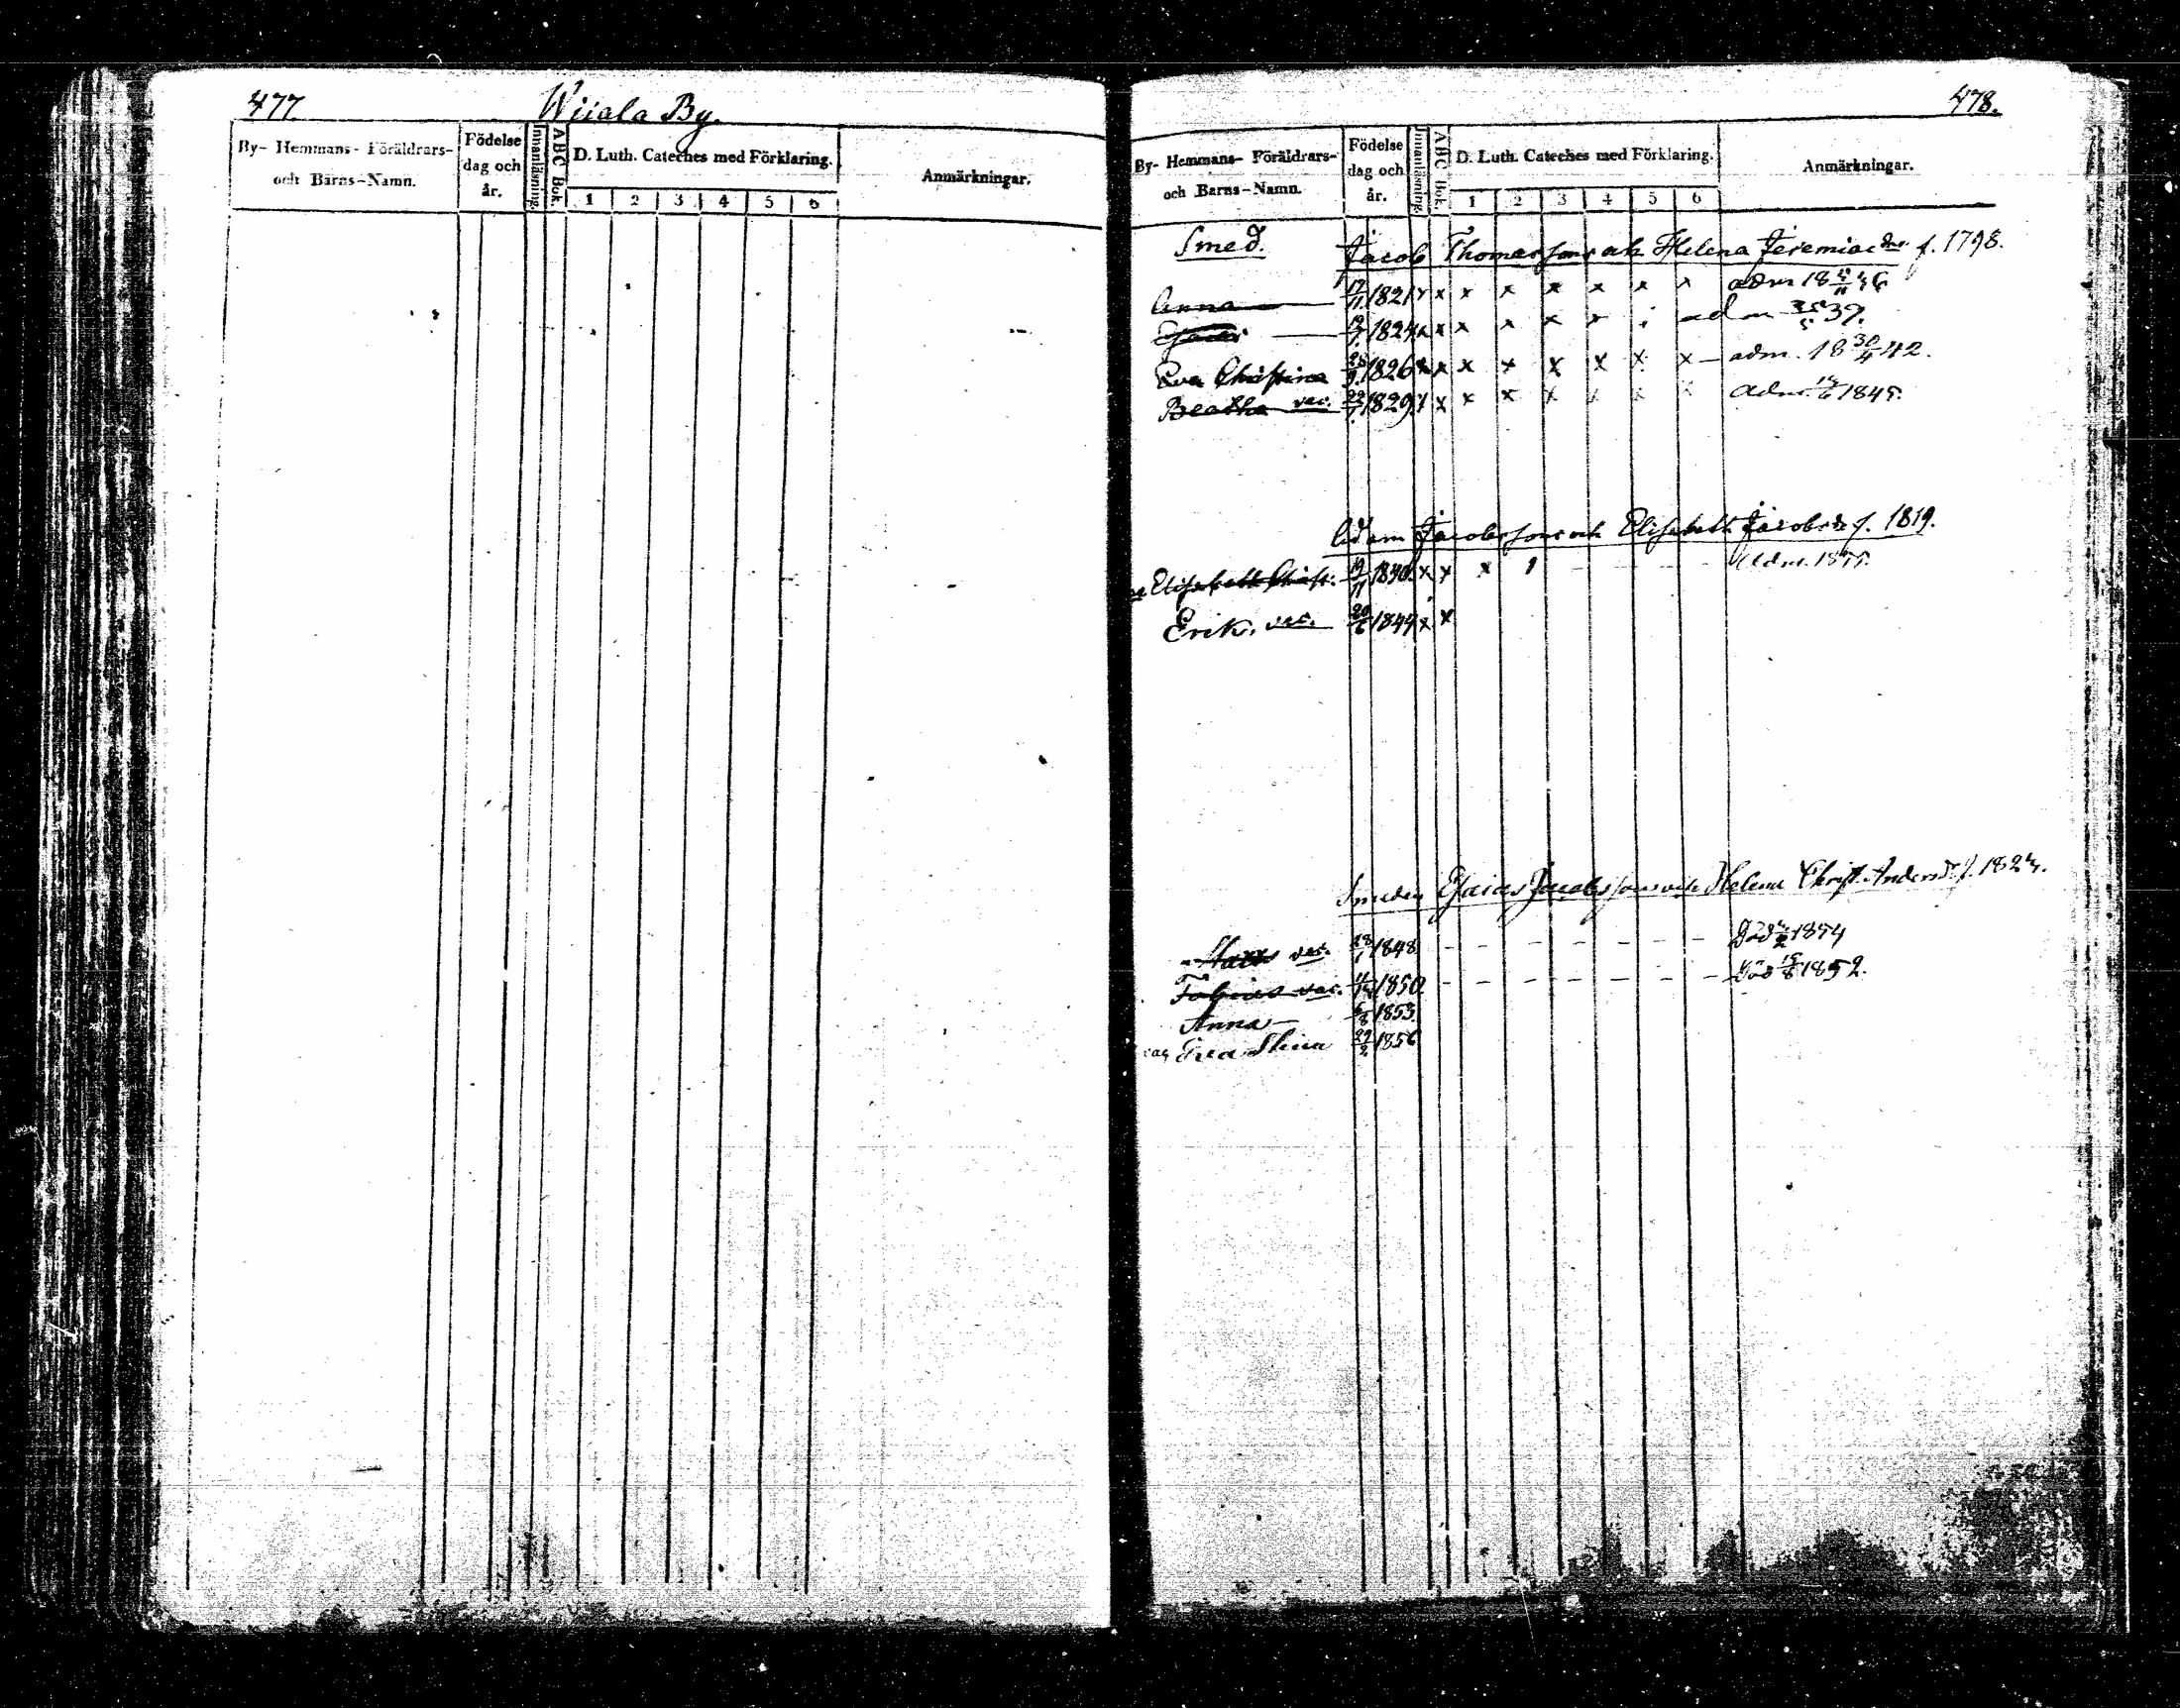 477
Wiiala By.
By- Hemmans- Föräldrars- och Barns-Namn.
Födelse dag och år.
Innanläsning.
ABC Bok.
D. Luth. Cateches med Förklaring.
1 2 3 4 5 6
Anmärkningar.
478.
By- Hemmans- Föräldrars- och Barns-Namn.
Födelse dag och år.
Innanläsning.
ABC Bok.
D. Luth. Cateches med Förklaring.
1 2 3 4 5 6
Anmärkningar.
Smed. Jacob Thomassons och Helena Jeremiaedr f. 1798.
Anna 17/11 1821 x x x x x x x x adm 18 46
Esaias 1824 x x x x x x adm 37.
Eva Christina 1826 x x x x x x x x adm. 18 30/4 42.
Beatha vac. 22/1 1829 x x x x x x x x adm. 1845.
Adam Jacobssons och Elisabeth Jacobsdr f. 1819.
Elisabeth Christ. 19/11 1840. x x x 1 Adm. 1855.
Erik. vac. 20/6 1844 x x
Smeden Esaias Jacobssons och Helena Christ. Andersdr f. 1824.
vac. 28/1 1848 - - - - - - Död 1854
Tobias vac. 1850 - - - - - - - Död 15/8 1852.
Anna 6/8 1853.
vac Eva Stina 29/2 1856